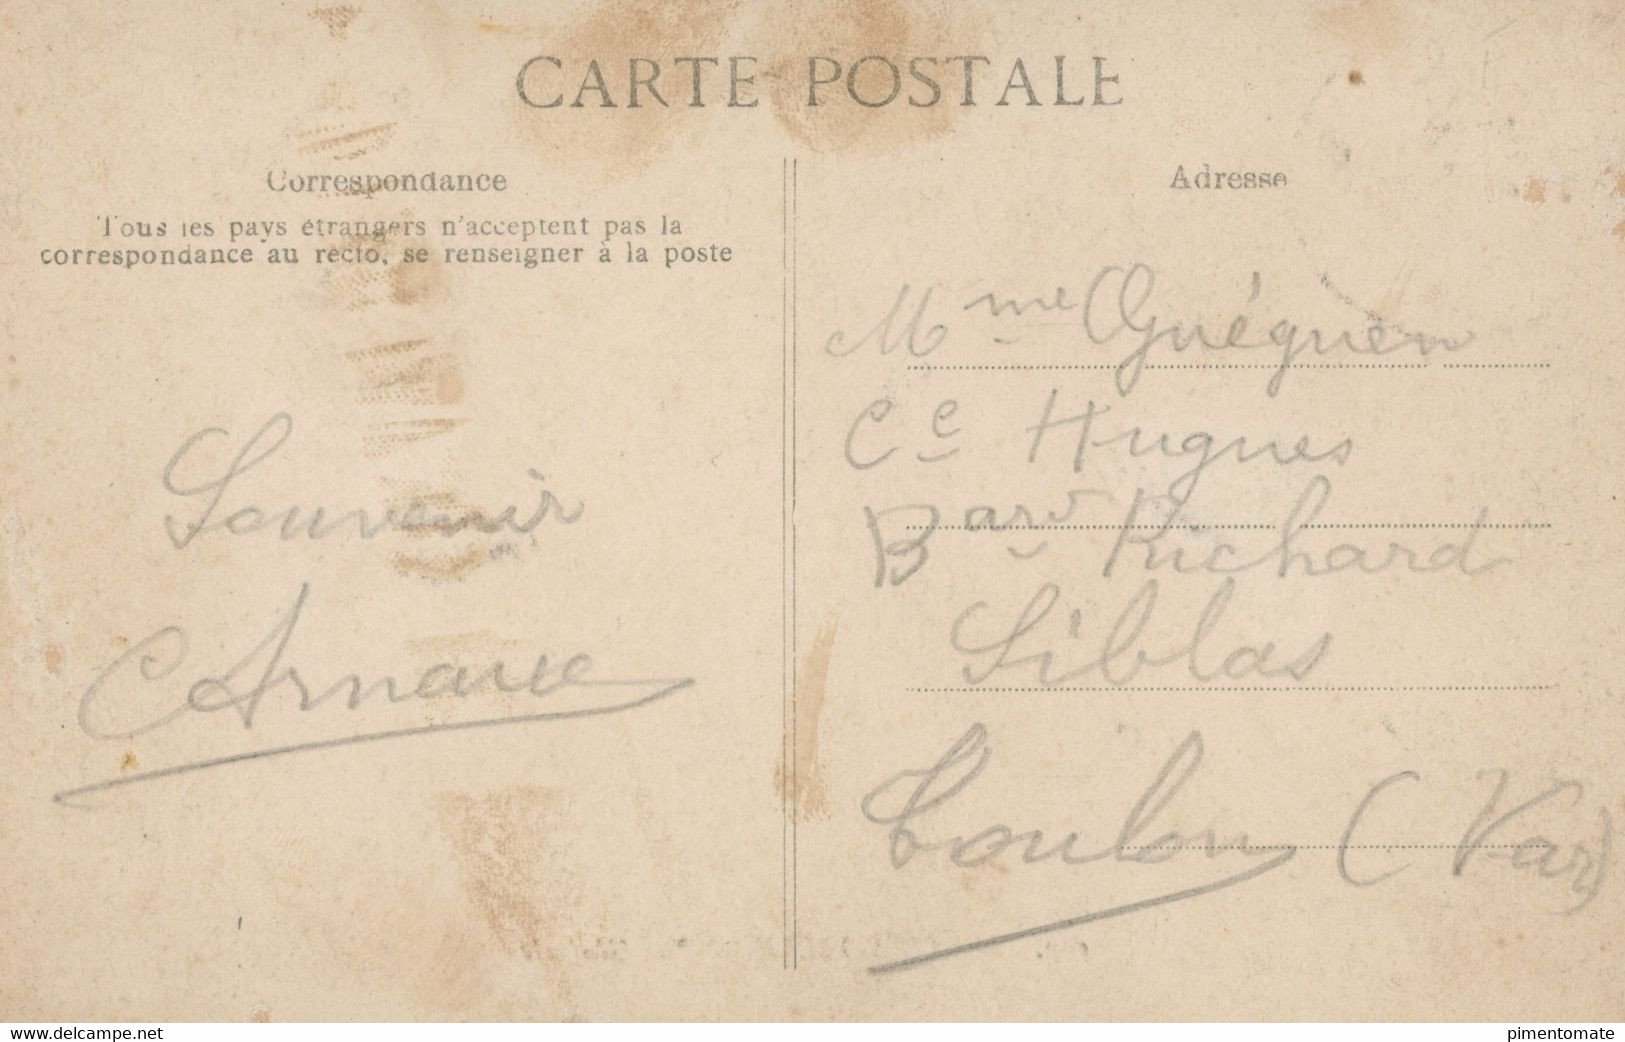 CARTE POSTALE
Correspondance
Tous les pays étrangers n'acceptent pas la
correspondance au recto, se renseigner à la poste
Souvenir
Adresse
Mme Guéguen
Ce Hugues
Bard Richard
Siblas
Toulon (Var)
www.delcampe.net
pimentomate